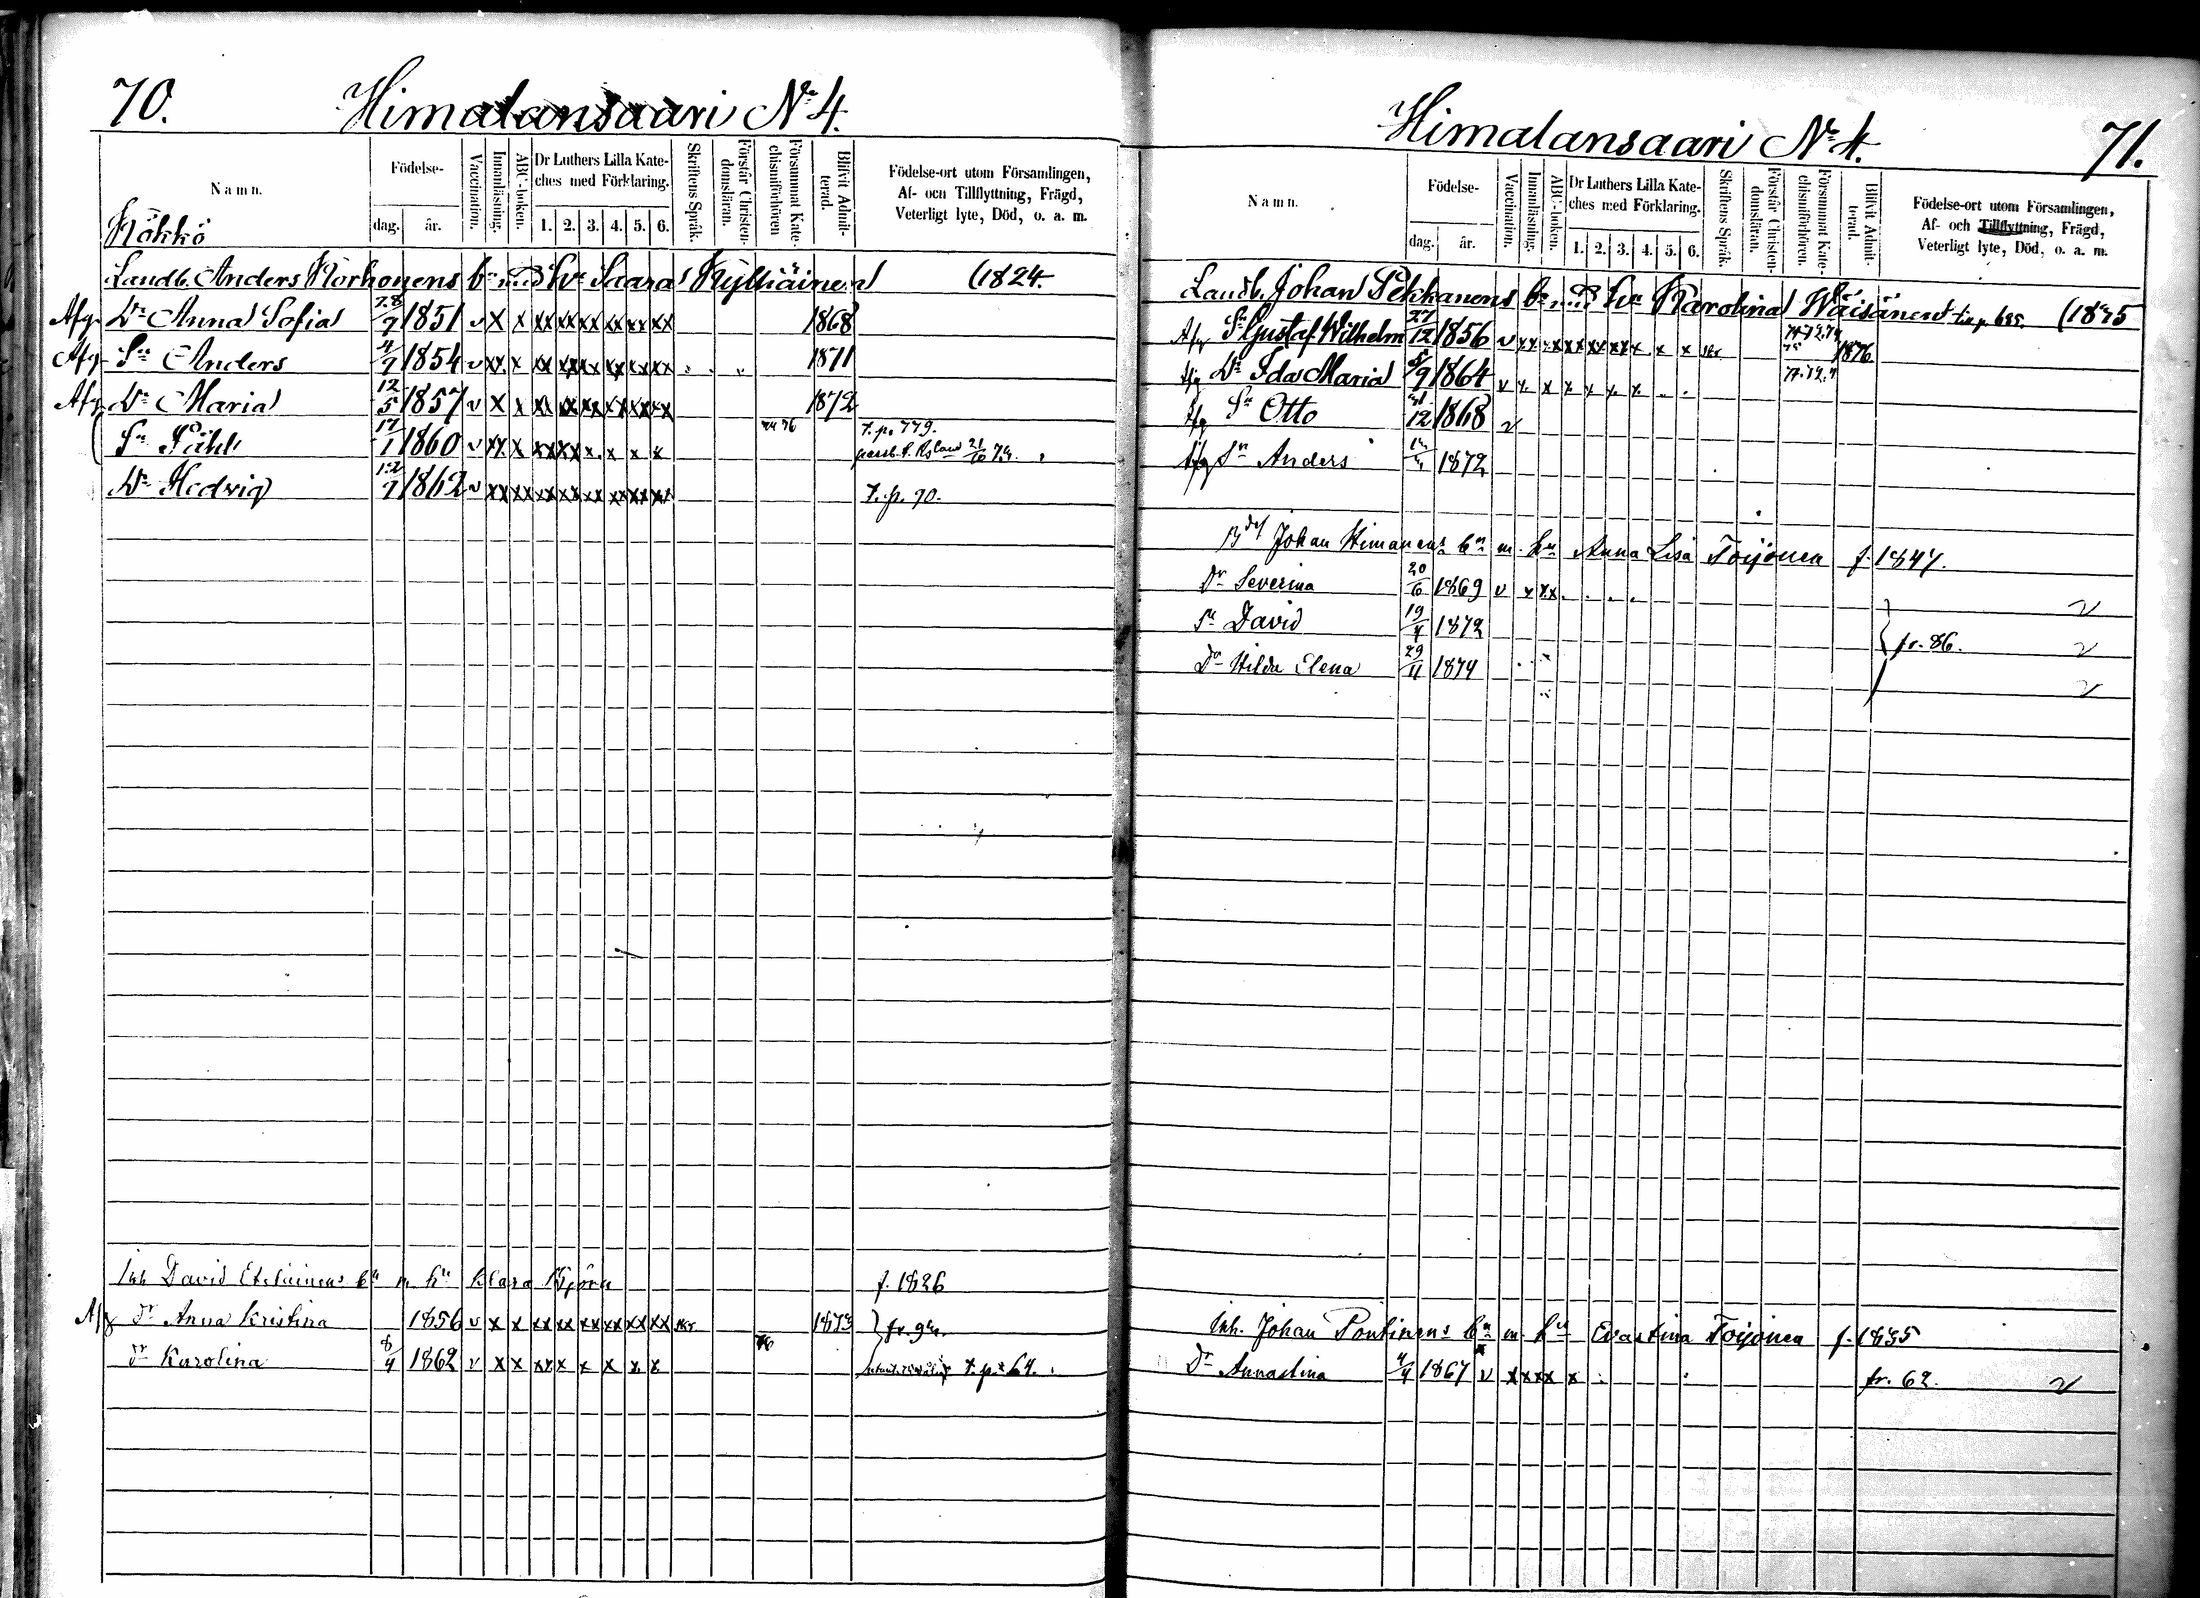 70.
Himalansaari No 4.
Namn.
Födelse-
dag.
år.
Vaccination.
Innanläsning.
ABC-boken.
Dr Luthers Lilla Kate-
ches med Förklaring.
1. 2. 3. 4. 5. 6.
Skriftens Språk.
Förstår Christen-
domsläran.
Försummat Kate-
chismiförhören
Blifvit Admit-
terad.
Födelse-ort utom Församlingen,
Af- och Tillflyttning, Frägd,
Veterligt lyte, Död, o. a. m.
Kökkö
Landb. Anders Korhonens bn med hu Saara Kylliäinen (1824.
Afg Dr Anna Sofia 28/7 1851 v x x xx xx xx xx xx xx 1868
Afg Sn Anders 4/9 1854 v xx x xx xx xx xx xx xx 1871
Afg Dr Maria 12/5 1857 v x x xx xx xx xx xx xx 1872
Sn Påhl 17/1 1860 v xx x xx xx x x x x 7476 T. p. 779.
Dr Hedvig 12/7 1862 v xx xx xx xx xx xx xx xx T. p. 90.
Inh David Eteläinens bn m hu Klara f. 1826
Afg dr Anna Kristina 1856 v x x xx xx xx xx xx xx 1873
dr Karolina 8/4 1862 v x x xx x x x x x 76 T. p. 64.
71.
Himalansaari No 4.
Namn.
Födelse-
dag.
år.
Vaccination.
Innanläsning.
ABC-boken.
Dr Luthers Lilla Kate-
ches med Förklaring.
1. 2. 3. 4. 5. 6.
Skriftens Språk.
Förstår Christen-
domsläran.
Försummat Kate-
chismiförhören.
Blifvit Admit-
terad.
Födelse-ort utom Församlingen,
Af- och Tillflyttning, Frägd,
Veterligt lyte, Död, o. a. m.
Landb. Johan Pekkanens bn med hu Karolina Wäisänen p. 685. (1835
Afg Sn Gustaf Wilhelm 27/12 1856 v xx xx xx xx xx x x x 1876
Afg Dr Ida Maria 5/9 1864 v x x x x x x
Afg Sn Otto 12 1868 v
Afg Sn Anders 1872
Johan Himanens bn m. hu Anna Lisa Toijonen f. 1847.
Dr Severina 20/6 1869 v x xx
Sn David 19/4 1872 fr. 86. v
Dr Hilda Elena 29/11 1874 v
Inh. Johan Pontinens bn m hu Evastina Toijonen f. 1835
Dr Annastina 4/4 1867 v x xx x x fr. 62. v